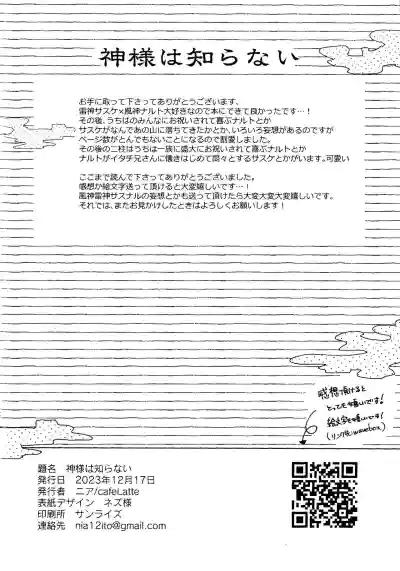 神様は知らない
お手に取って下さってありがとうございます、
雷神サスケ×風神ナルト大好きなので本にできて良かったです…！
その後、うちはのみんなにお祝いされて喜ぶナルトとか
サスケがなんであの山に落ちてきたかとか、いろいろ妄想があるのですが
ページ数がとんでもないことになるので割愛しました。
その後の二柱はうちは一族に盛大にお祝いされて喜ぶナルトとか
ナルトがイタチ兄さんに懐きはじめて悶々とするサスケとかがいます。可愛い
ここまで読んで下さってありがとうございました。
感想か絵文字送って頂けると大変嬉しいです…！
風神雷神サスナルの妄想とかも送って頂けたら大変大変大変嬉しいです。
それでは、またお見かけしたときはよろしくお願いします！
感想頂けると
とっても嬉しいです！
絵文字も嬉しいです！
(リンク先:wavebox)
題名 神様は知らない
発行日 2023年12月17日
発行者 ニア/cafeLatte
表紙デザイン ネズ様
印刷所 サンライズ
連絡先 nia12ito@gmail.com